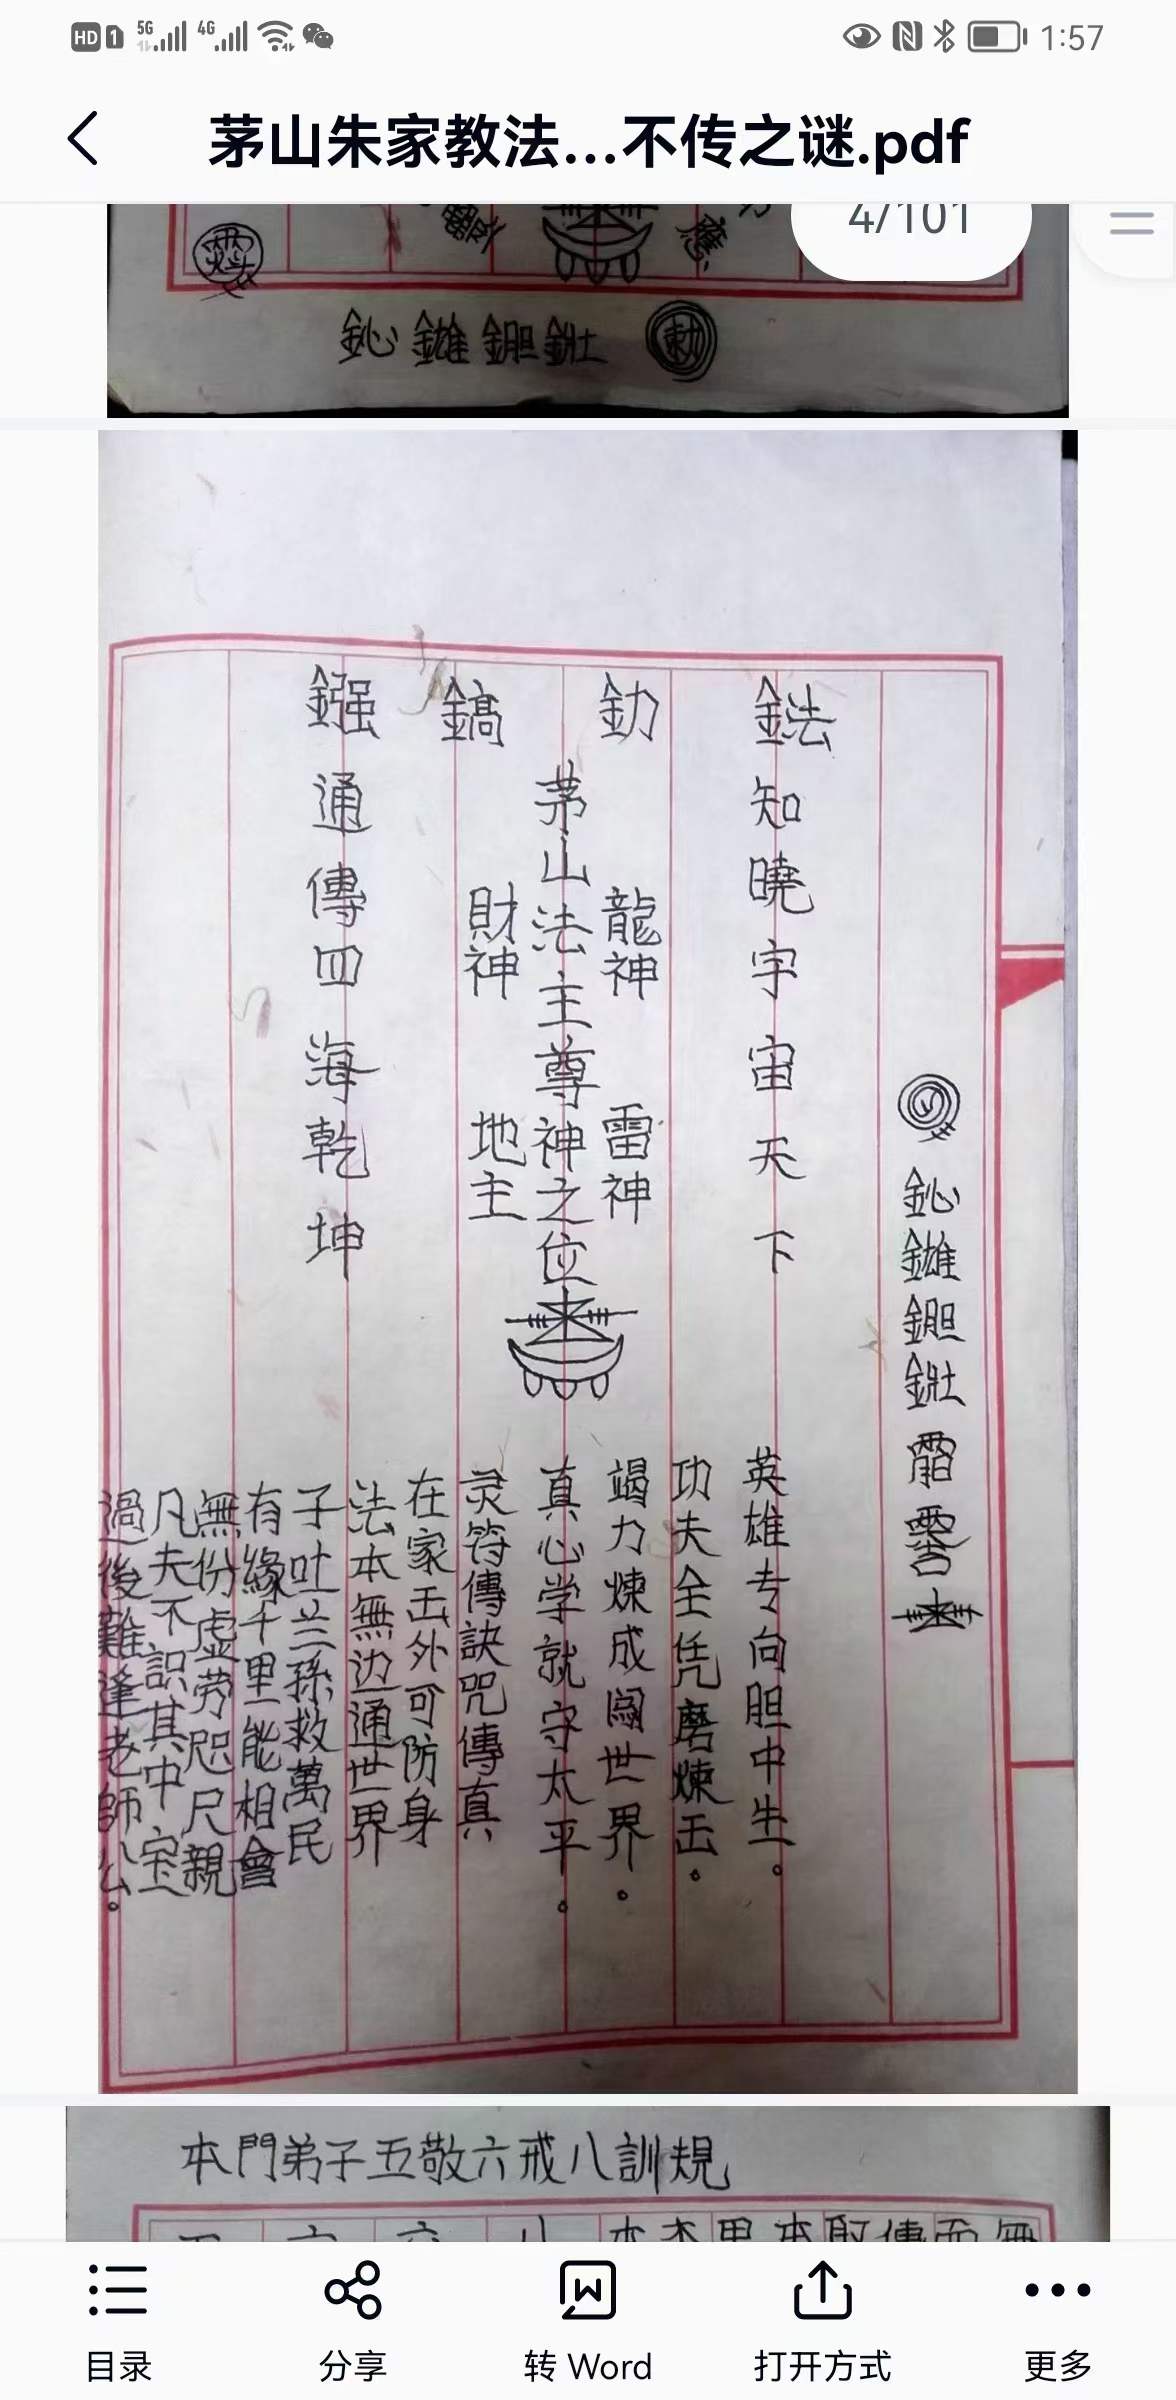 HD 1 5G 4G 1:57
茅山朱家教法...不传之谜.pdf
4/101
勅
鈊 胆 壯
鈊
法 力 高 强
知曉宇宙天下
龍神 雷神
茅山法主尊神之位
財神 地主
通傳四海乾坤
英雄专向胆中生。
功夫全凭磨煉击。
竭力煉成闖世界。
真心学就守太平。
灵符傳訣咒傳真
在家击外可防身
法本無边通世界
子吐兰孫救萬民
有緣千里能相會
無份虚劳咫尺親
凡夫不識其中宝
過後難逢老師公。
本門弟子五敬六戒八訓規
目录
分享
转 Word
打开方式
更多